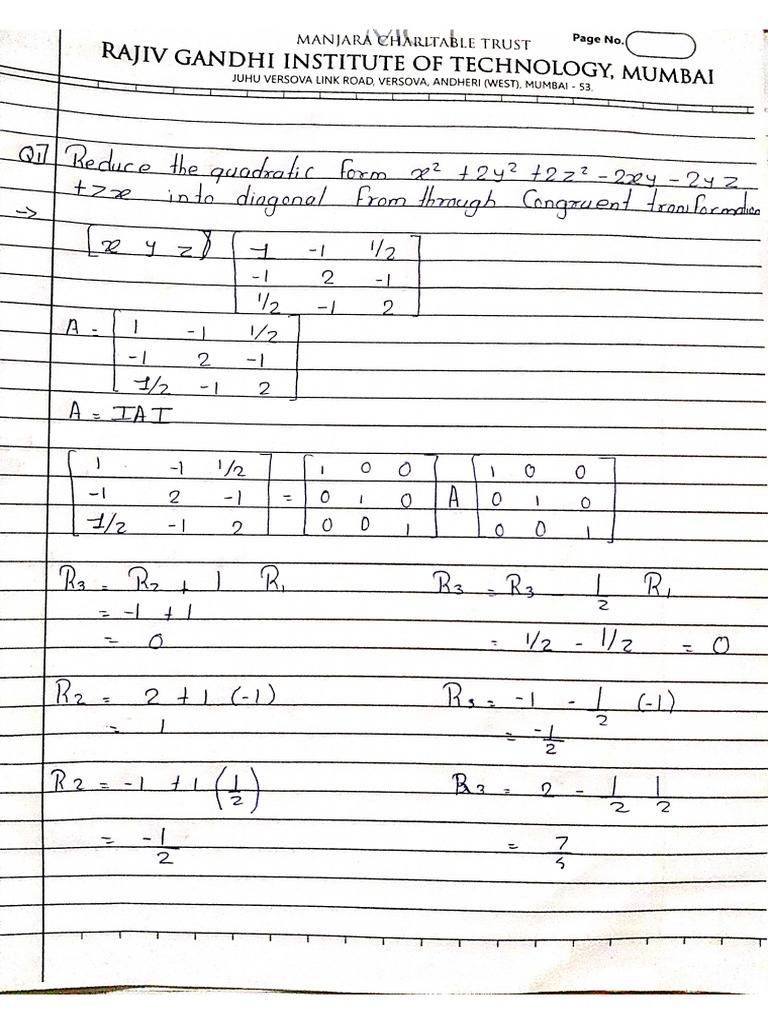 MANJARA CHARITABLE TRUST
Page No.
RAJIV GANDHI INSTITUTE OF TECHNOLOGY, MUMBAI
JUHU VERSOVA LINK ROAD, VERSOVA, ANDHERI (WEST), MUMBAI - 53.
Q1] Reduce the quadratic form x² + 2y² + 2z² - 2xy - 2yz
+ zx into diagonal from through Congruent transformation
→
[x y z] [1 -1 1/2
-1 2 -1
1/2 -1 2]
A = [1 -1 1/2
-1 2 -1
1/2 -1 2]
A = IAI
[1 -1 1/2
-1 2 -1
1/2 -1 2] = [1 0 0
0 1 0
0 0 1] A [1 0 0
0 1 0
0 0 1]
R3 = R2 + 1 R1 R3 = R3 - 1/2 R1
= -1 + 1
= 0 = 1/2 - 1/2 = 0
R2 = 2 + 1 (-1) R3 = -1 - 1/2 (-1)
= 1 = -1/2
R2 = -1 + 1 (1/2) R3 = 2 - 1/2 1/2
= -1/2 = 7/